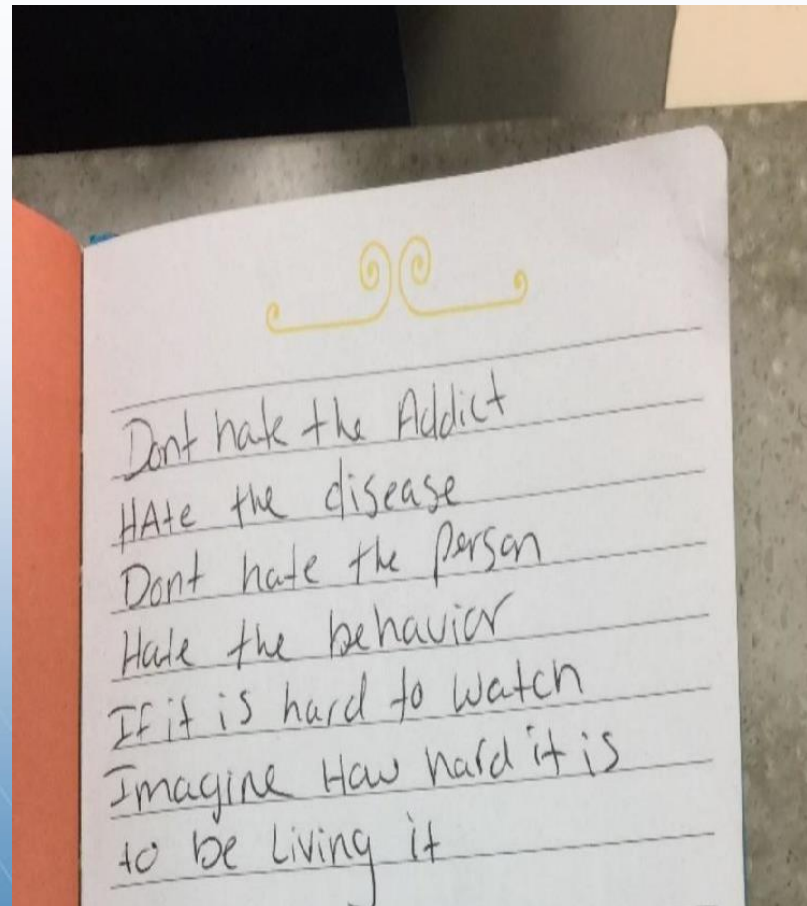 Dont hate the Addict
HAte the disease
Dont hate the person
Hate the behavior
If it is hard to watch
Imagine How hard it is
to be Living it